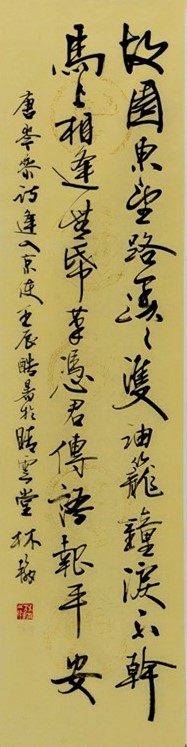 故園東望路漫〻雙袖籠鐘淚不幹
馬上相逢無帋筆憑君傳語報平安
唐岑參詩逢入京使壬辰酷暑於晴雲堂林